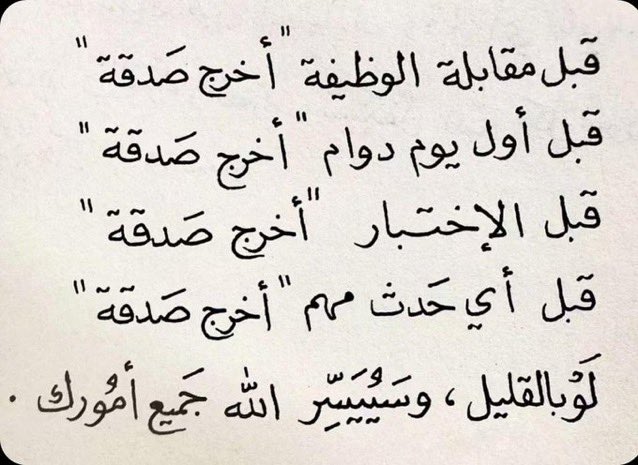 قبل مقابلة الوظيفة "أخرج صَدقة"
قبل أول يوم دوام "أخرج صَدقة"
قبل الإختبار "أخرج صَدقة"
قبل أي حَدث مهم "أخرج صَدقة"
لَوْ بالقليل، وسَيُيَسِّر الله جَميع أمُورك.